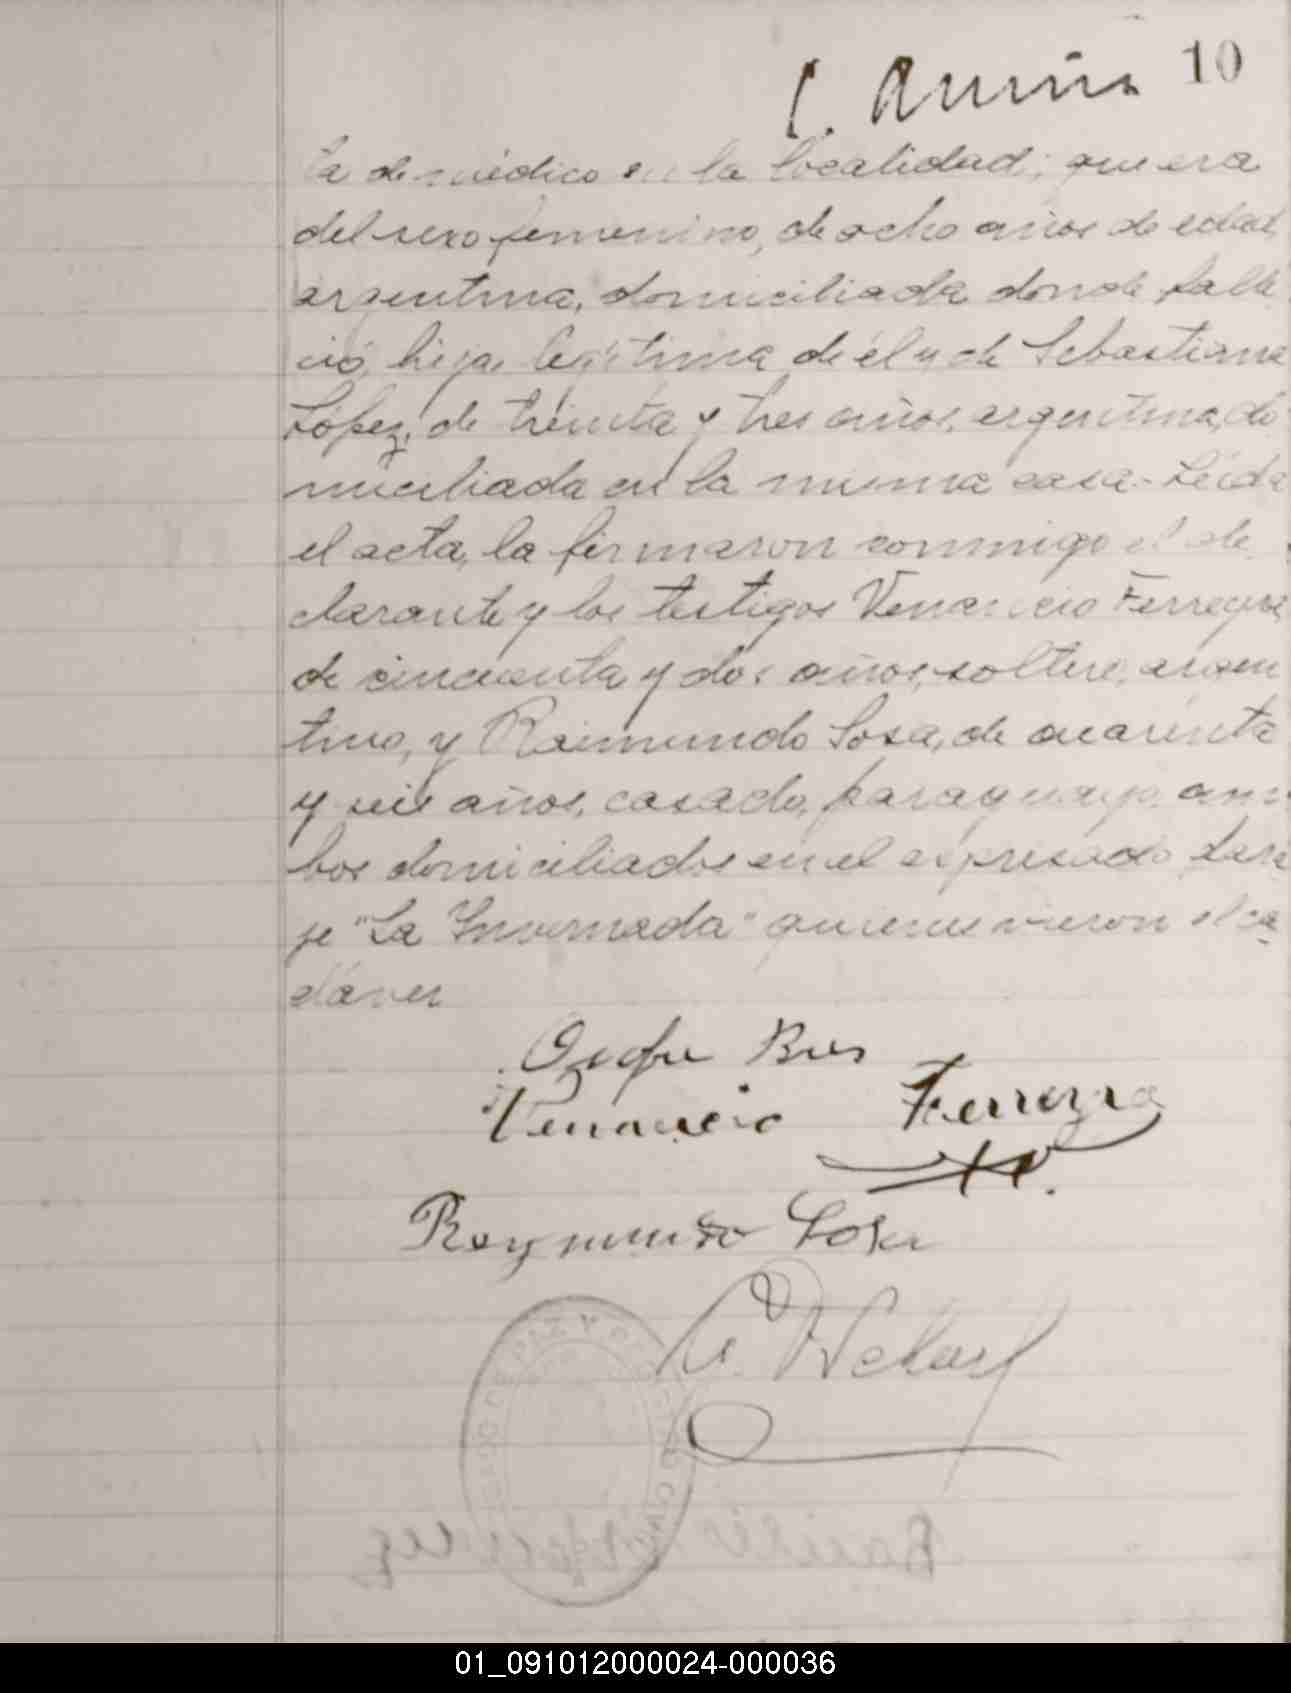 10
ta de médico en la localidad; que era
del sexo femenino, de ocho años de edad,
argentina, domiciliada donde falle
ció, hija legítima de él y de Sebastiana
López, de treinta y tres años, argentina, do
miciliada en la misma casa. Leída
el acta, la firmaron conmigo el de
clarante y los testigos Venancio Ferreyra
de cincuenta y dos años, soltero, argen
tino, y Raimundo Sosa, de cuarenta
y seis años, casado, paraguayo, am
bos domiciliados en el expresado para
je "La Invernada" quienes vieron el ca
dáver
Venancio Ferreyra
Raymundo Sosa
DE PAZ Y
01_091012000024-000036